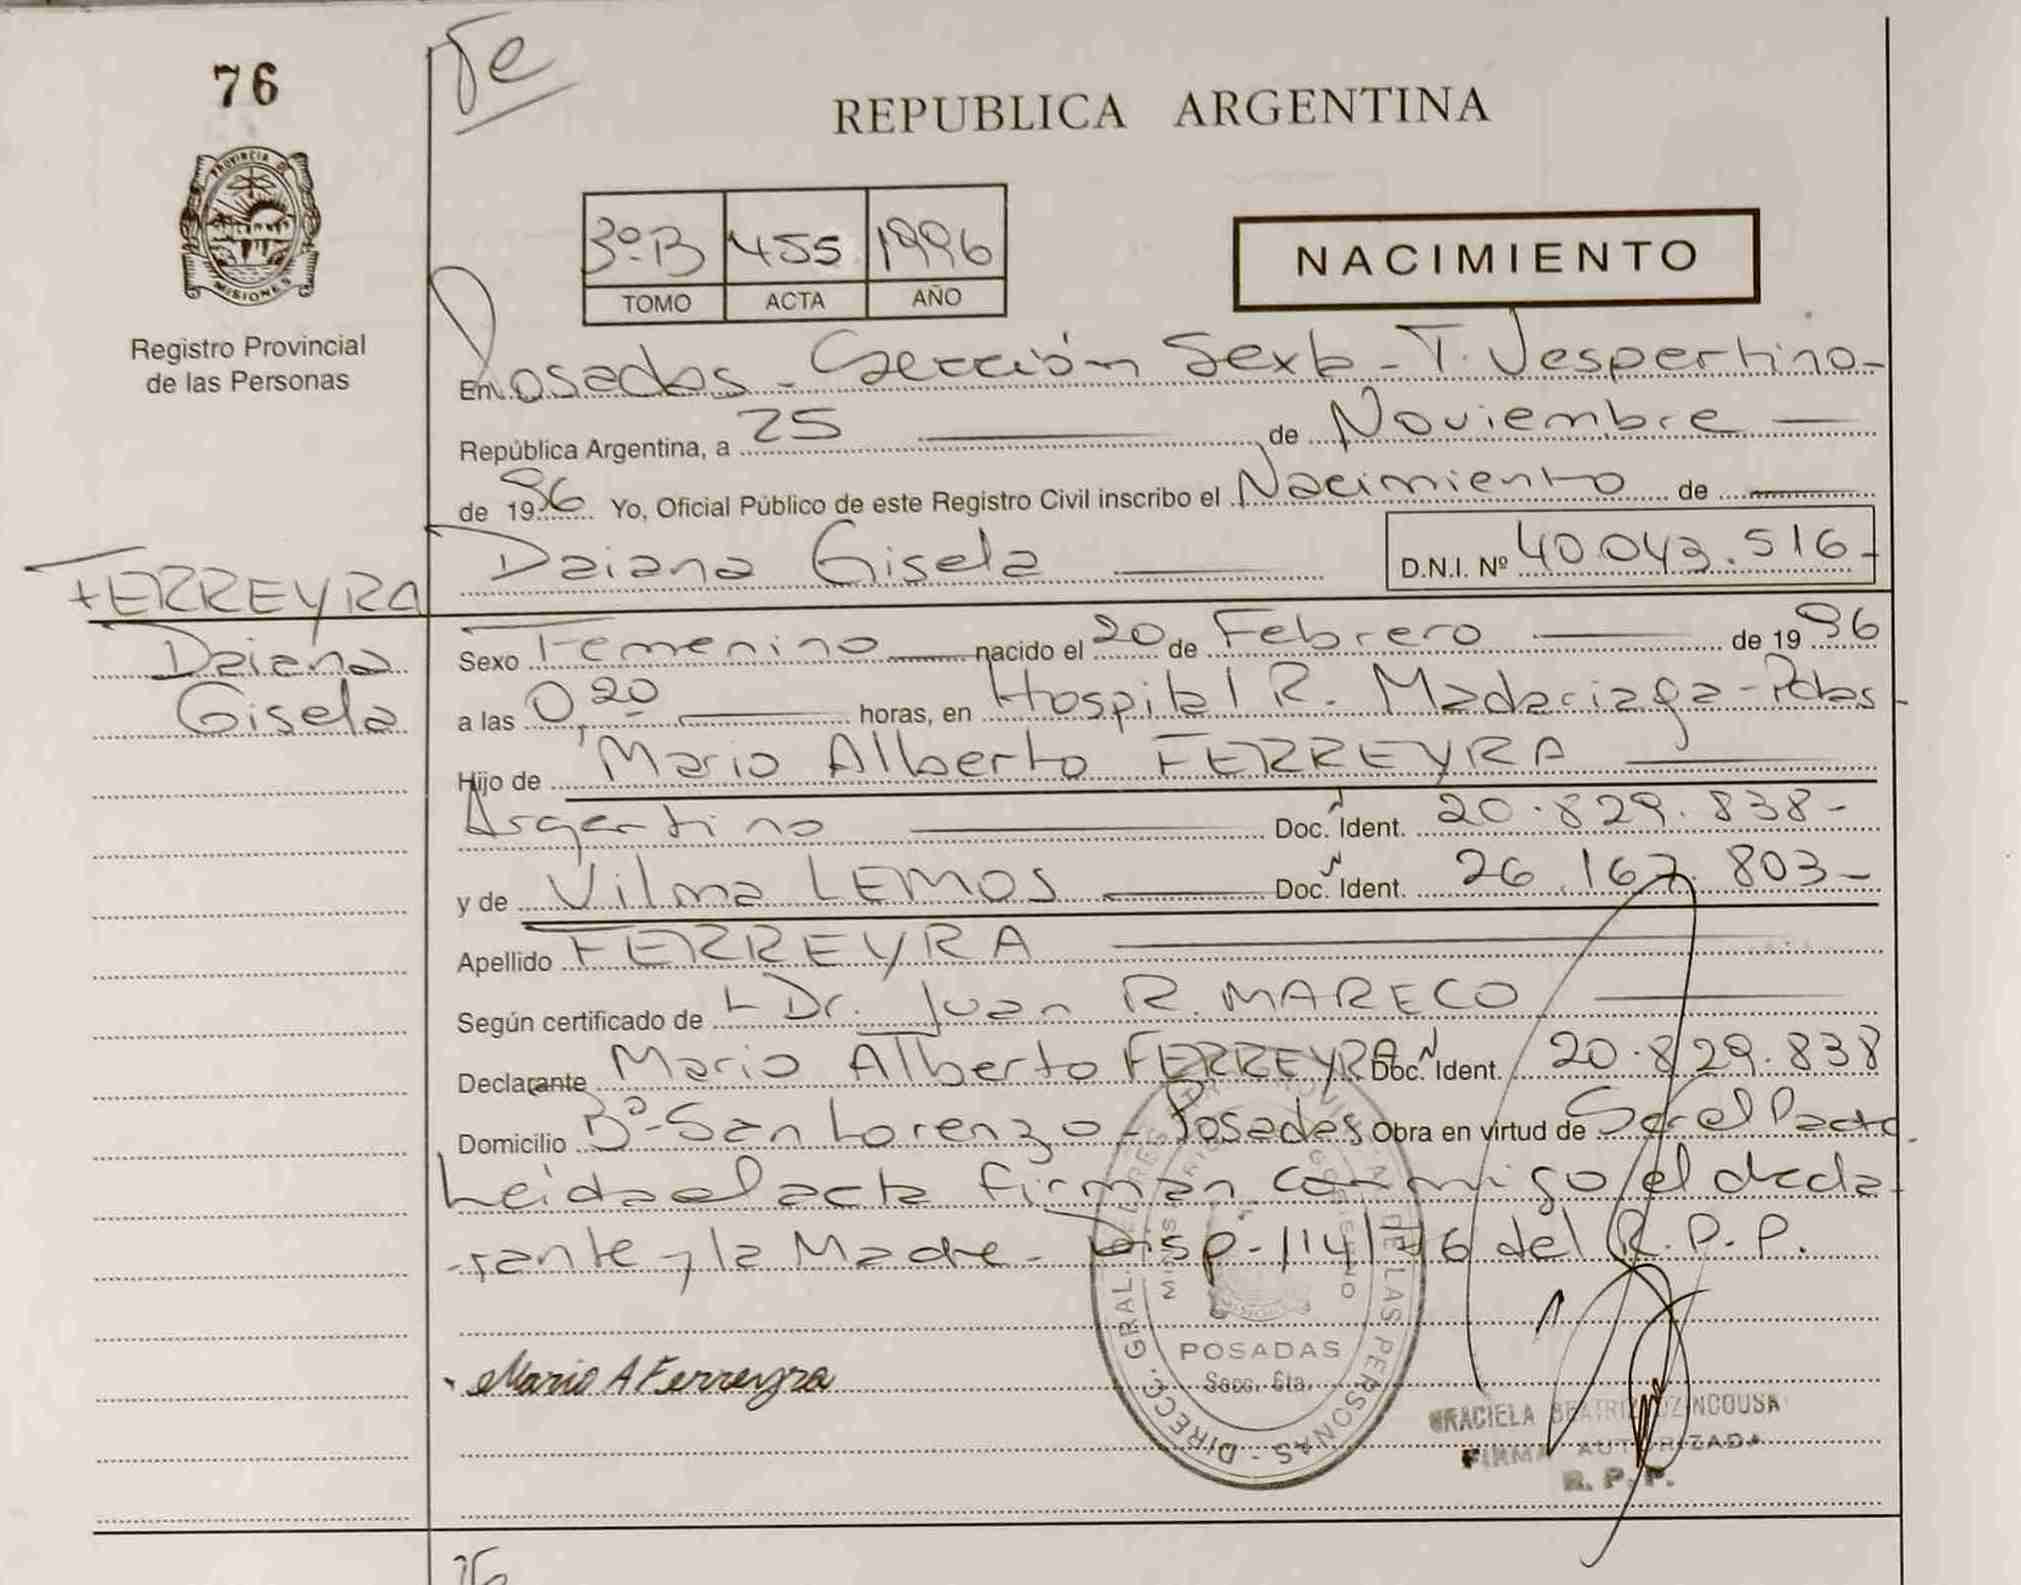 76
Te
REPUBLICA ARGENTINA
PROVINCIA DE
MISIONES
3º-B 455 1996
TOMO ACTA AÑO
NACIMIENTO
Registro Provincial
de las Personas
En Posadas - Sección Sexta - T. Vespertino -
República Argentina, a 25 de Noviembre
de 1996 Yo, Oficial Público de este Registro Civil inscribo el Nacimiento de
Daiana Gisela D.N.I. Nº 40.043.516-
FERREYRA
Daiana
Gisela
Sexo Femenino nacido el 20 de Febrero de 1996
a las 0,20 horas, en Hospital R. Madariaga - Pdas -
Hijo de Mario Alberto FERREYRA
Argentino Doc. Ident. 20.829.838-
y de Vilma LEMOS Doc. Ident. 26.167.803-
Apellido FERREYRA
Según certificado de Dr. Juan R. MARECO
Declarante Mario Alberto FERREYRA Doc. Ident. 20.829.838
Domicilio Bº-San Lorenzo - Posadas Obra en virtud de Ser el Padre.
Leida el acta firman conmigo el decla-
-rante y la Madre - Disp - 114/96 del R.P.P.
Mario A Ferreyra
POSADAS
Secc. 6ta.
DIRECC. GRAL. DE LAS PERSONAS
GRACIELA BEATRIZ
FIRMA AUTORIZADA
R. P. P.